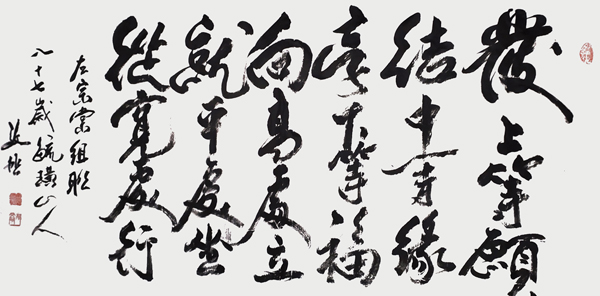 發上等願
結中等緣
享下等福
向高處立
就平處坐
從寬處行
左宗棠組聯
八十七歲毓璜山人